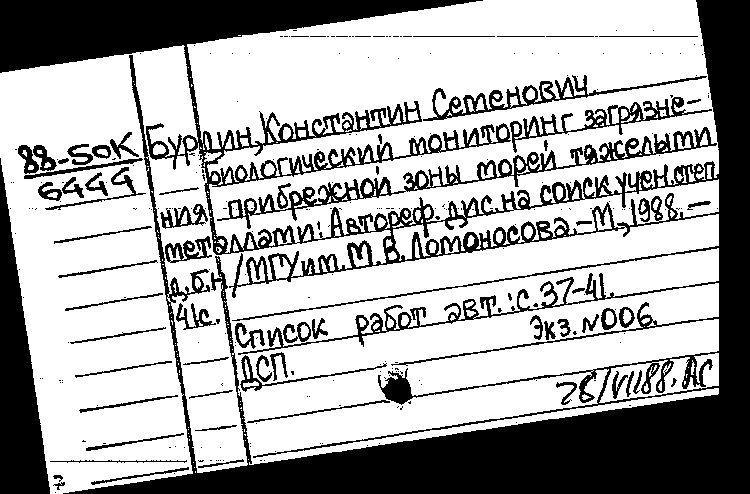 88-5ОК
6444
Бурдин, Константин Семенович.
Биологический мониторинг загрязне-
ния прибрежной зоны морей тяжелыми
металлами: Автореф. дис. на соиск. учен. степ.
д.б.н / МГУ им. М.В. Ломоносова. – М., 1988. –
41с.
Список работ авт.: с.37-41.
Экз. N006.
ДСП.
28/VII88. АС
7